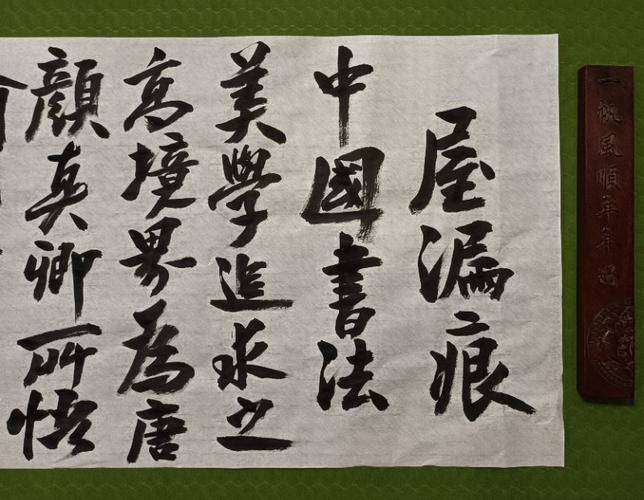 屋漏痕
中國書法
美學追求之
高境界為唐
顏真卿所悟
一帆風順年年